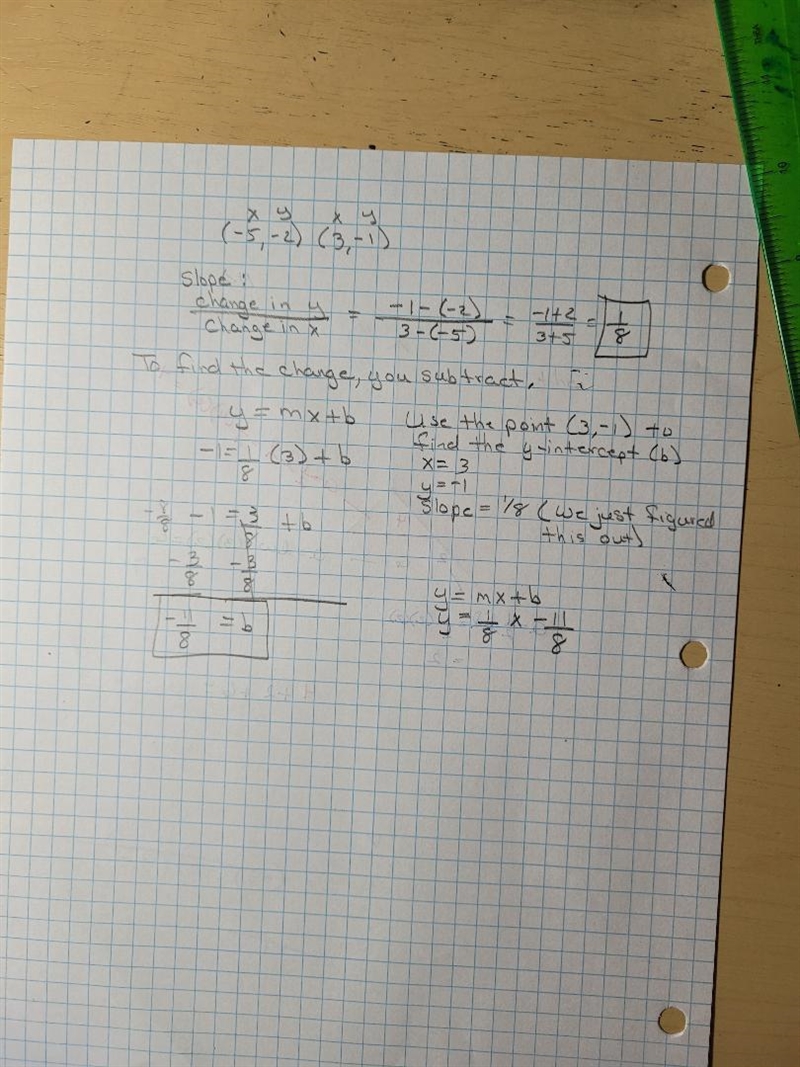 x y x y
(-5,-2) (3,-1)
Slope:
change in y / change in x = -1-(-2) / 3-(-5) = -1+2 / 3+5 = 1/8
To find the change, you subtract.
y = mx+b
-1 = 1/8 (3) + b
-8/8 -1 = 3/8 + b
-3/8 -3/8
-11/8 = b
Use the point (3,-1) to
find the y-intercept (b)
x = 3
y = -1
Slope = 1/8 (we just figured
this out)
y = mx+b
y = 1/8 x -11/8